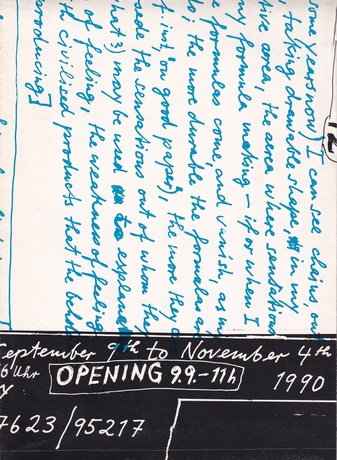 12
some years now) I can see chains, out
taking drawable shape, in my
tive area, the area where sensations
my formula making – if or when I
formulas come and vanish, as
the more durable the formulas
inst. on good paper), the more they
the sensations out of whom the
that 3) may be used to explain
of feeling, the weakness of feeling
th civilised products that the
producing]
September 9th to November 4th
16 Uhr OPENING 9.9.–11h 1990
y
7623/95217